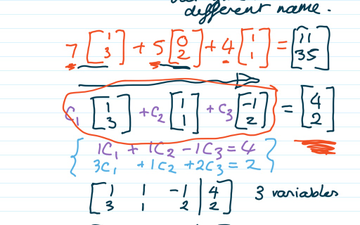 different name.
7 [1 3] + 5 [0 2] + 4 [1 1] = [11 35]
C1 [1 3] + C2 [1 1] + C3 [-1 2] = [4 2]
1C1 + 1C2 - 1C3 = 4
3C1 + 1C2 + 2C3 = 2
[1 1 -1 | 4
3 1 2 | 2] 3 variables